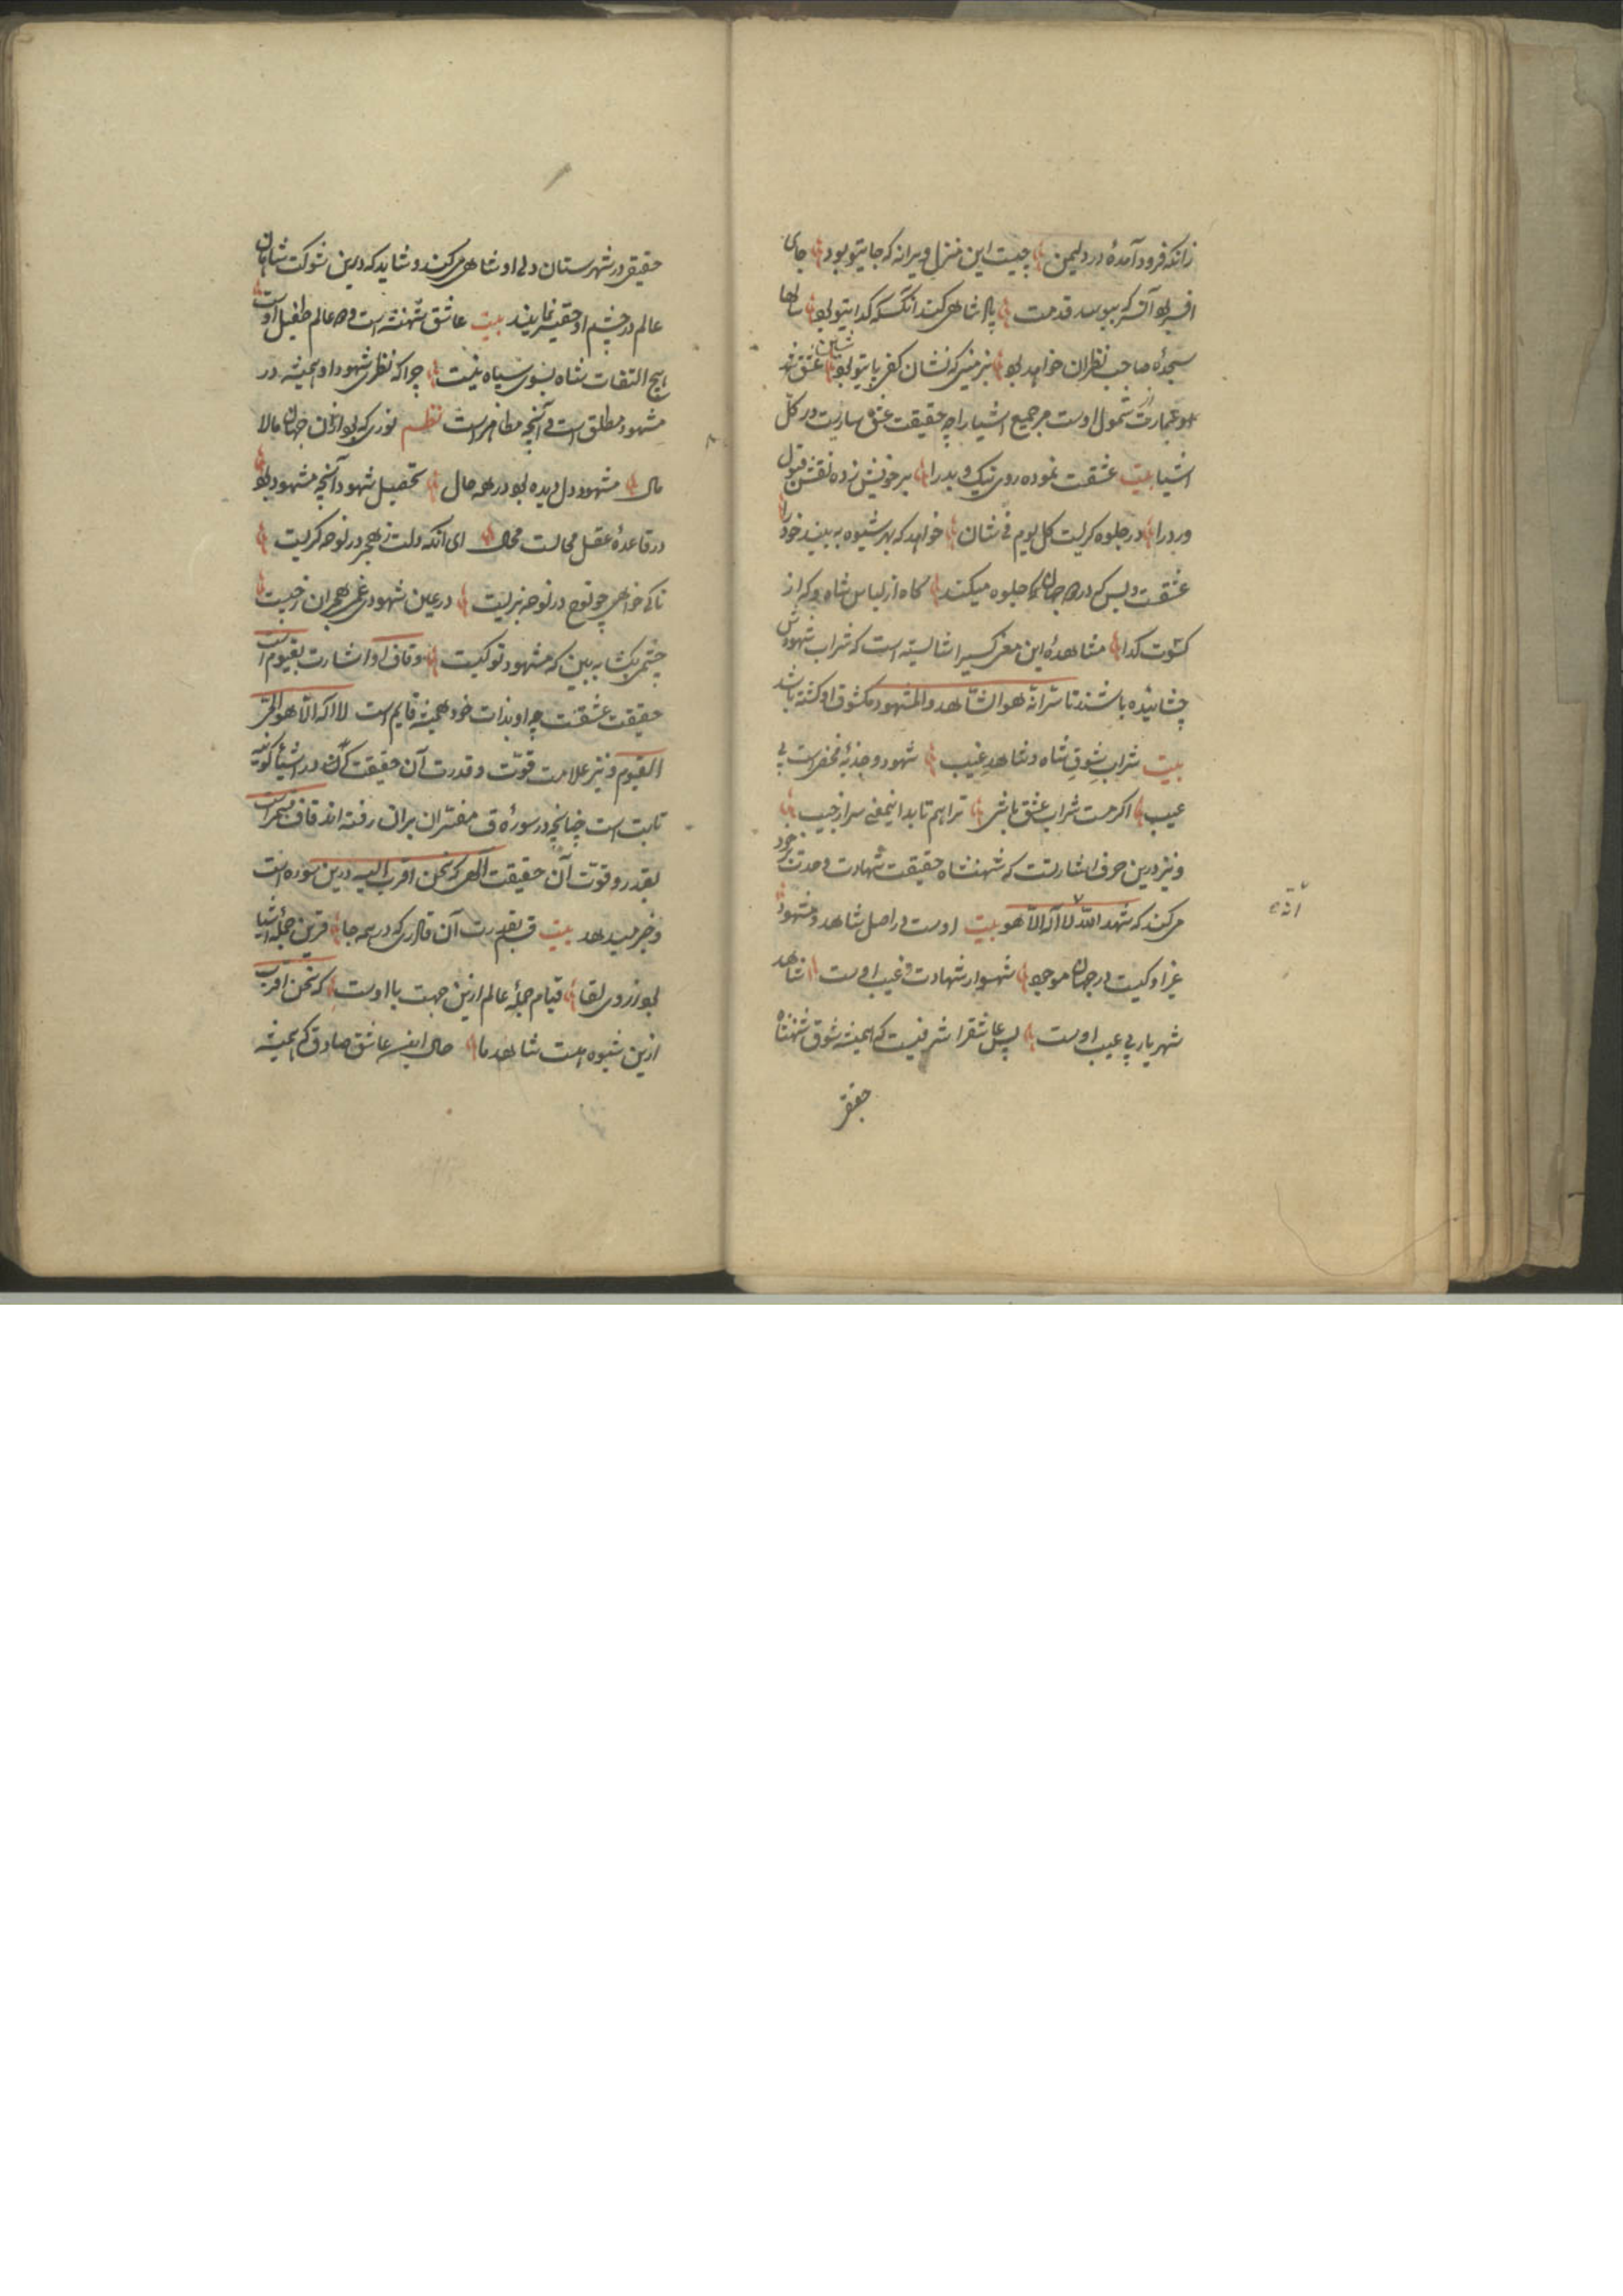 زانکه فرود آمدهٔ در دلیمن چیست این منزل ویرانه که جایتو بود جای
افسر بود آن سر که ببوسد قدمت پادشاهی کند آنکسکه کدایتو بود سالها
سجدهٔ صاحب نظران خواهد بود بر زمینی که نشان کف پایتو بود شین عشق
عبارت شمول اوست مر جمیع اشیا را چه حقیقت عشق ساریت در کل
اشیا بیت عشقت نموده روی نیک و بد را بر خویش زده نقش قبول
و رد را در جلوه کریت کل یوم فی شان خواهد که بهر شیوه به بیند خود را
عشقت و بس که در دو جهان جلوه میکند کاه از لباس شاه و که از
کسوت کدا مشاهدهٔ این معنی کسیرا شایسته است که شراب شهودش
چشانیده باشند تا سر انه هو الشاهد والمشهود مکشوف او کشته باشد
بیت شراب شوق شاه و شاهد غیب شهود و جذبهٔ محض است بی
عیب اکر مست شراب عشق باشی ترا هم تابد اینمعنی سر از جیب
و نیز درین حرف اشارتست که شهنشاه حقیقت شهادت وحدت خود
می کند که شهد الله انه لا اله الا هو بیت اوست در اصل شاهد و مشهود
غیر او کیست در جهان موجود شهسوار شهادت و غیب اوست شاهد
شهریار بی عیب اوست پس عاشقرا شرفیست که همیشه شوق شهنشاه
حقیقی
حقیقی در شهرستان دل او شاهی می کند و شاید که درین شوکت شاهان
عالم در چشم او حقیر نمایند بیت عاشق شهنشه است و دو عالم طفیل اوست
هیچ التفات شاه بسوی سپاه نیست چرا که نظری شهود او همیشه در
مشهود مطلق است در آنچه مظاهر است نظم نوری که بود ازان جهان مالا
مال مشهود دل دیده بود در همه حال تحصیل شهود آنچه مشهود بود
در قاعدهٔ عقل محالست محال ای آنکه دلت ز هجر در نوحه کریست
تا کی خواهی چو نوح در نوحه بزیست در عین شهودی غم هجران ز چیست
چشمی بکشا به بین که مشهود تو کیست و قاف او اشارت بقیوم است
حقیقت عشقت چه او بذات خود همیشه قایم است لا اله الا هو الحی
القیوم و نیز علامت قوت و قدرت آن حقیقت که در اشیا کونیه
ثابت است چنانچه در سورهٔ ق مفسران بران رفته اند قاف قسم است
بقدر و قوت آن حقیقت الهی که نحن اقرب الیه درین سوره است
و خبر میدهد بیت قسم بقدرت آن قادری که در همه جا قرین جملهٔ اشیا
بود ز روی لقا قیام جملهٔ عالم ازین جهت با اوست که نحن اقرب
ازین شیوه هست شاهد ما حال اینسر عاشق صادق که همیشه
انه